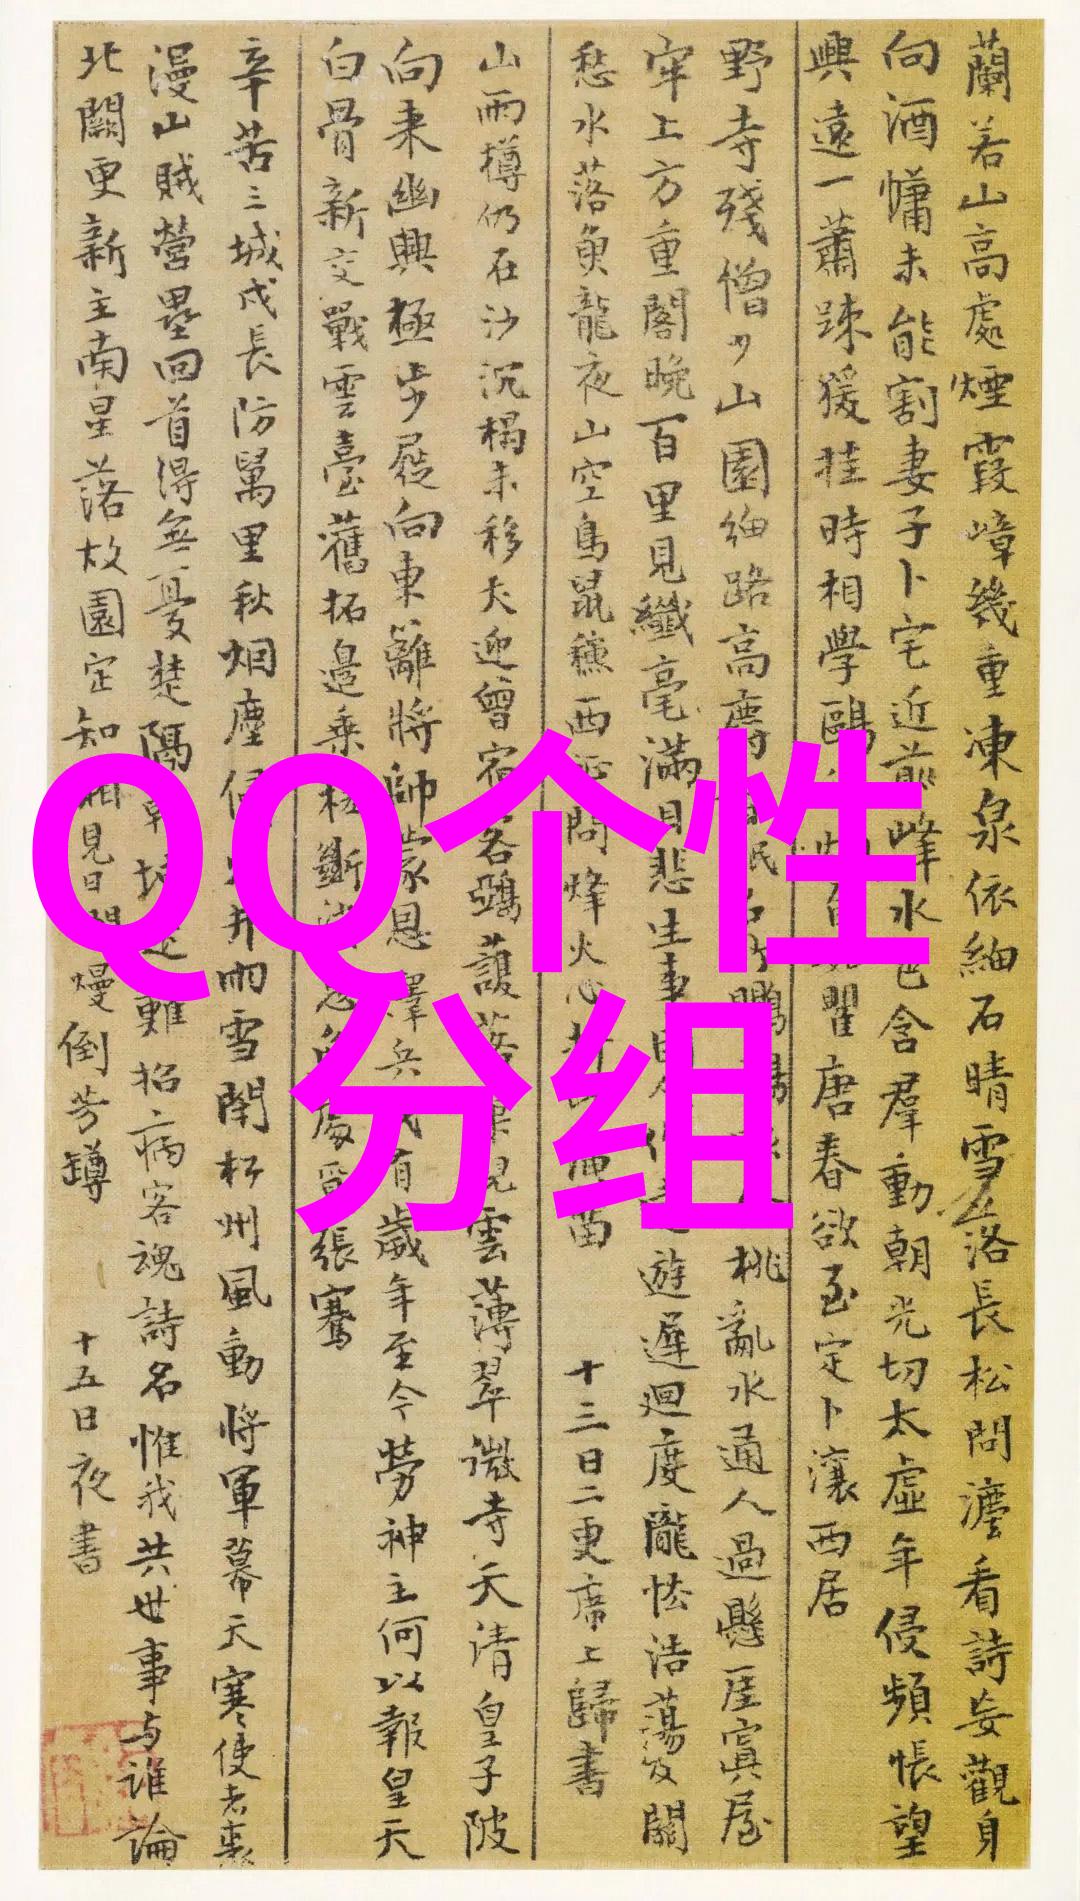 蘭若山高處煙霞嶂幾重凍泉依細石晴雪落長松問灋看詩妄觀身
向酒慵未能割妻子卜宅近前峰水色含羣動朝光切太虛年侵頻悵望
興遠一蕭踈猨挂時相學鷗瞿唐春欲至定卜瀼西居
野寺殘僧少山園細路高麝香眠石竹鸚鵡桃亂水通人過懸崖寘屋
牢上方重閣晚百里見纖毫滿目悲生事因人作遠遊遲迴度隴怯浩蕩及關
愁水落魚龍夜山空鳥鼠秋西征問烽火心折此淹留 十三日二更席上歸書
山雨樽仍在沙沉榻未移犬迎曾宿客鴉護落巢兒雲薄翠微寺天清皇子陂
向來幽興極步屧向東籬將帥蒙恩澤兵戈有歲年至今勞神主何以報皇天
白骨新交戰雲臺舊拓邊乘槎斷消息處覓張騫
辛苦三城戍長防萬里秋烟塵侵火井雨雪閉松州風動將軍幕天寒使者裘
漫山賊營壘回首得無憂楚隔乾坤遠難招病客魂詩名惟我共世事与誰論
北闕更新主南星落故園定知相見日爛熳倒芳罇 十五日夜書
QQ个性
分组